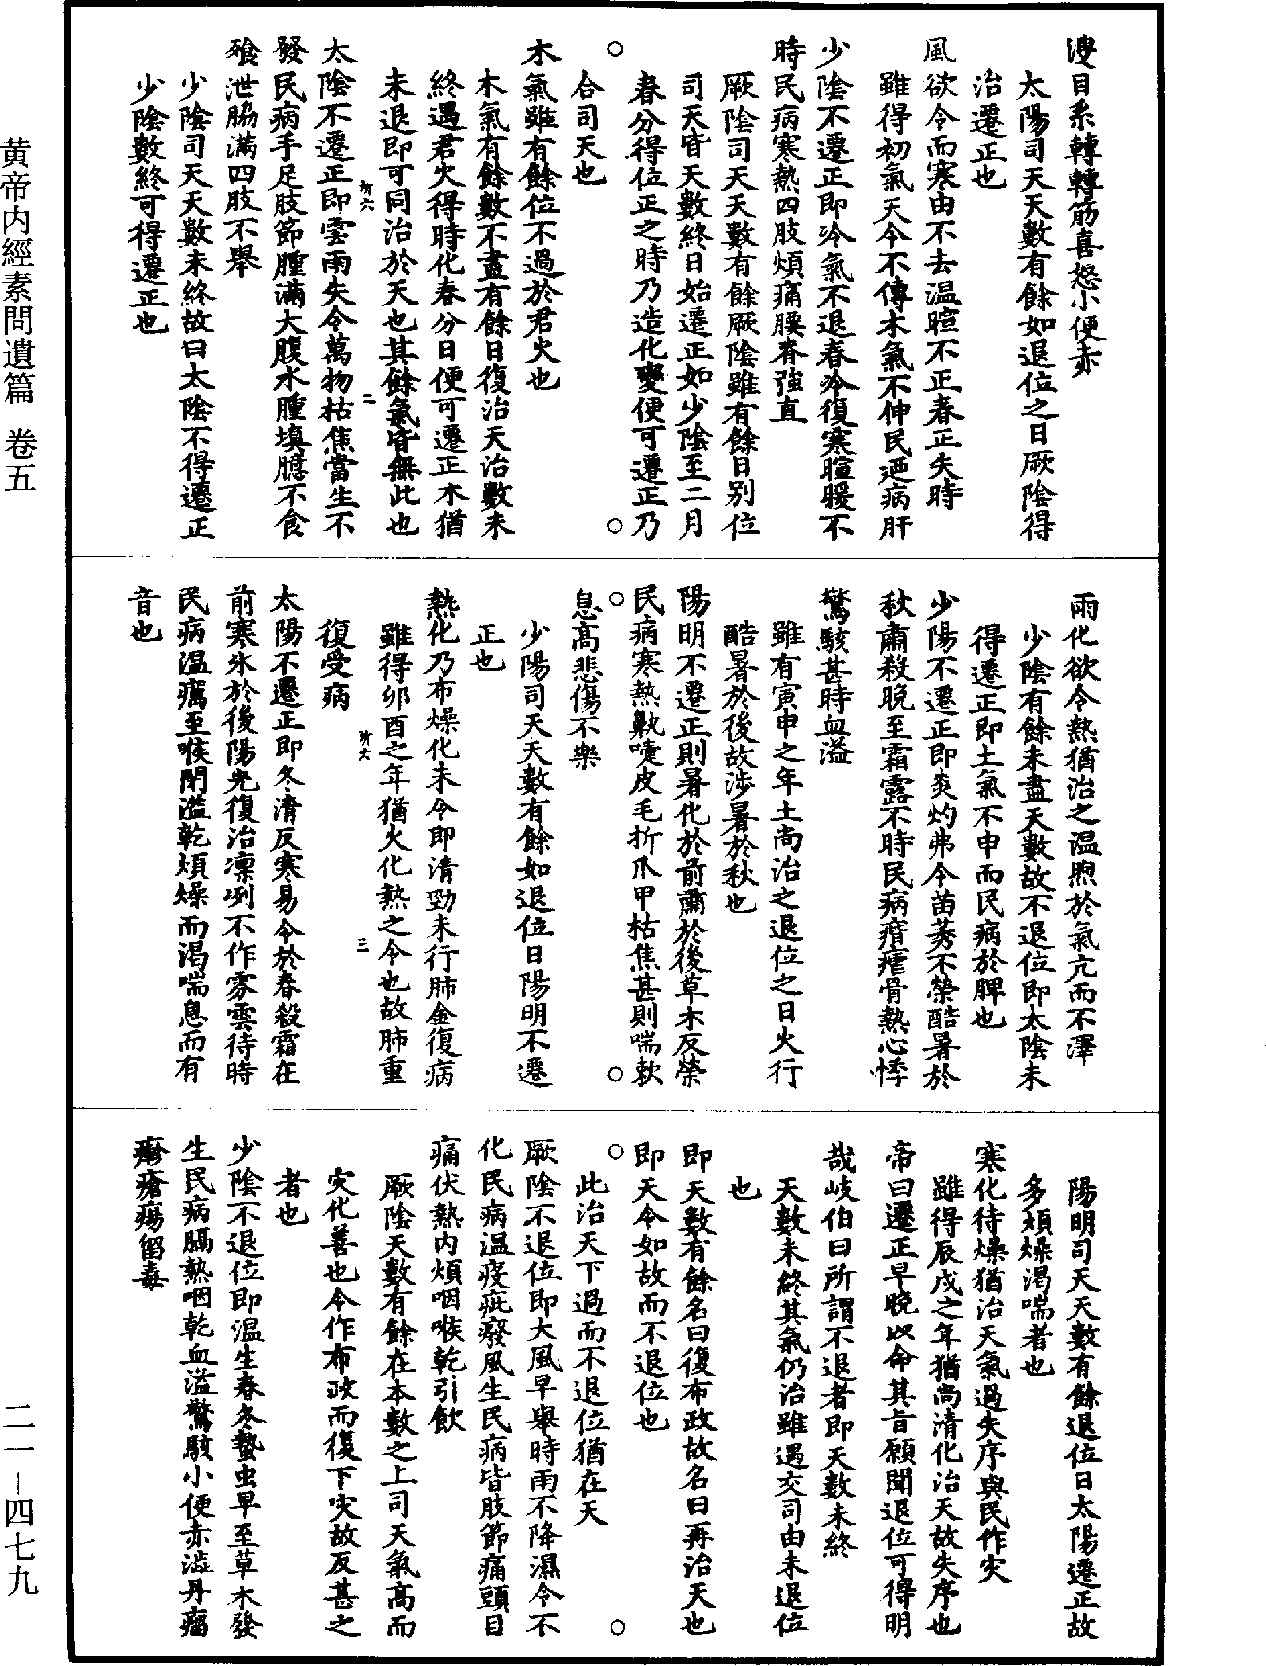 溲目系轉轉筋喜怒小便赤
太陽司天天數有餘如退位之日厥陰得
治遷正也
風欲令而寒由不去温暄不正春正失時
雖得初氣天令不傳木氣不伸民迺病肝
少陰不遷正即冷氣不退春冷復寒暄暖不
時民病寒熱四肢煩痛腰脊強直
厥陰司天天數有餘厥陰雖有餘日别位
司天皆天數終日始遷正如少陰至二月
春分得位正之時乃造化變便可遷正乃
合司天也
木氣雖有餘位不過於君火也
木氣有餘數不盡有餘日復治天治數未
終遇君火得時化春分日便可遷正木猶
未退即可同治於天也其餘氣皆無此也
所六 二
太陰不遷正即雲雨失令萬物枯焦當生不
發民病手足肢節腫滿大腹水腫填臆不食
飧泄脇滿四肢不舉
少陰司天天數未終故曰太陰不得遷正
少陰數終可得遷正也
雨化欲令熱猶治之温煦於氣亢而不澤
少陰有餘未盡天數故不退位即太陰未
得遷正即土氣不申而民病於脾也
少陽不遷正即炎灼弗令苗莠不榮酷暑於
秋肅殺晚至霜露不時民病痟瘧骨熱心悸
驚駭甚時血溢
雖有寅申之年土尚治之退位之日火行
酷暑於後故涉暑於秋也
陽明不遷正則暑化於前肅於後草木反榮
民病寒熱鼽嚏皮毛折爪甲枯焦甚則喘欬
息高悲傷不樂
少陽司天天數有餘如退位日陽明不遷
正也
熱化乃布燥化未令即清勁未行肺金復病
雖得卯酉之年猶火化熱之令也故肺重
復受病
所六 三
太陽不遷正即冬清反寒易令於春殺霜在
前寒冰於後陽光復治凜冽不作雰雲待時
民病温癘至喉閉溢乾煩燥而渴喘息而有
音也
陽明司天天數有餘退位日太陽遷正故
多煩燥渴喘者也
寒化待燥猶治天氣過失序與民作灾
雖得辰戌之年猶尚清化治天故失序也
帝曰遷正早晚以命其旨願聞退位可得明
哉岐伯曰所謂不退者即天數未終
天數未終其氣仍治雖遇交司由未退位
也
即天數有餘名曰復布政故名曰再治天也
即天令如故而不退位也
此治天下過而不退位猶在天
厥陰不退位即大風早舉時雨不降濕令不
化民病温疫疵癈風生民病皆肢節痛頭目
痛伏熱内煩咽喉乾引飲
厥陰天數有餘在本數之上司天氣高而
灾化善也令作布政而復下灾故反甚之
者也
少陰不退位即温生春冬蟄虫早至草木發
生民病膈熱咽乾血溢驚駭小便赤澁丹瘤
㾦瘡瘍留毒
黄帝内經素問遺篇 卷五
二一—四七九